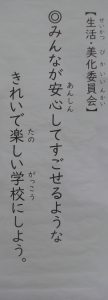 【生活・美化委員会】
◎みんなが安心してすごせるような
きれいで楽しい学校にしよう。